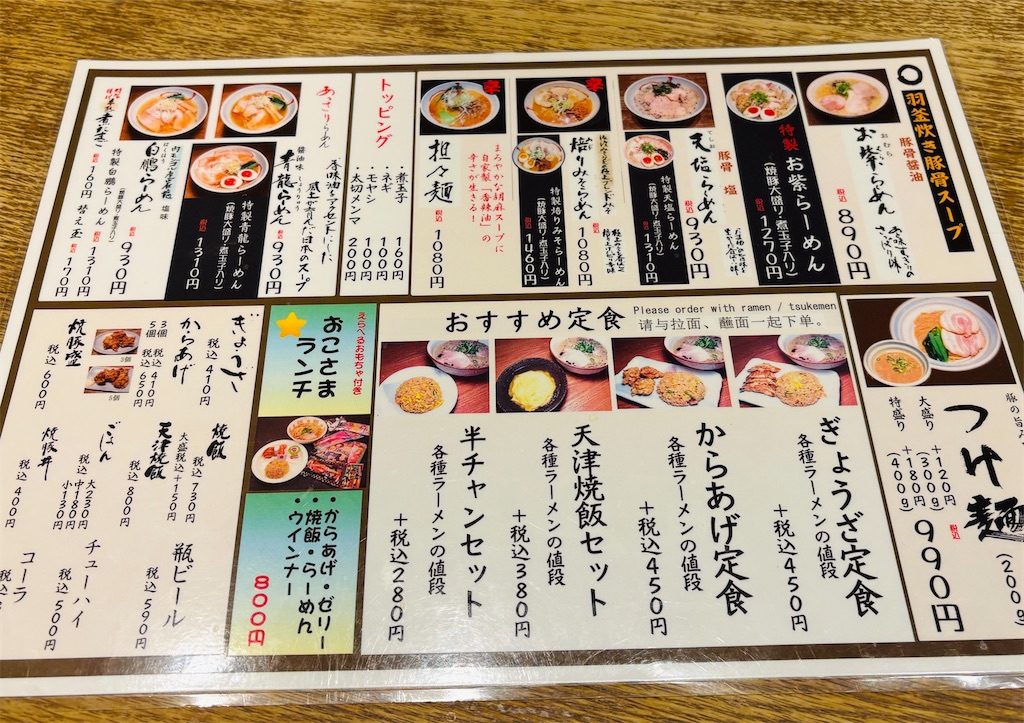 羽釜炊き豚骨スープ
豚骨醤油
おむら
お紫らーめん
税込
890円
特製
お紫らーめん
(焼豚大盛り・煮玉子入り)
税込
1270円
豚骨 塩
てしお
天塩らーめん
税込
930円
特製天塩らーめん
(焼豚大盛り・煮玉子入り)
税込
1310円
辛
焙りみそらーめん
税込
1080円
特製焙りみそらーめん
(焼豚大盛り・煮玉子入り)
税込
1460円
辛
担々麺
まろやかな胡麻スープに
自家製「香辣油」の
辛さが生きる!
税込
1080円
トッピング
煮玉子 160円
ネギ 100円
モヤシ 100円
太切メンマ 200円
あさりらーめん
醤油味
せいりゅう
青龍らーめん
税込
930円
特製青龍らーめん
(焼豚大盛り・煮玉子入り)
税込
1310円
塩味
はくほう
白鵬らーめん
税込
930円
特製白鵬らーめん
税込
1310円
替え玉
税込
170円
煮たまご
税込
160円
つけ麺
(200g)
税込
990円
大盛り +120円
(300g)
特盛り +180円
(400g)
おすすめ定食
Please order with ramen / tsukemen
请与拉面、蘸面一起下单。
ぎょうざ定食
各種ラーメンの値段
+税込450円
からあげ定食
各種ラーメンの値段
+税込450円
天津焼飯セット
各種ラーメンの値段
+税込380円
半チャンセット
各種ラーメンの値段
+税込280円
えらべるおもちゃ付き
おこさま
ランチ
・からあげ・ゼリー
・焼飯・らーめん
・ウインナー
800円
ぎょうざ
税込410円
からあげ
3個 税込410円
5個 税込650円
3個
5個
焼豚盛
税込600円
焼飯
税込730円
大盛税込+150円
天津焼飯
税込800円
ごはん
大230円
税込 中180円
小130円
焼豚丼
税込400円
瓶ビール
税込590円
チューハイ
税込500円
コーラ
税込